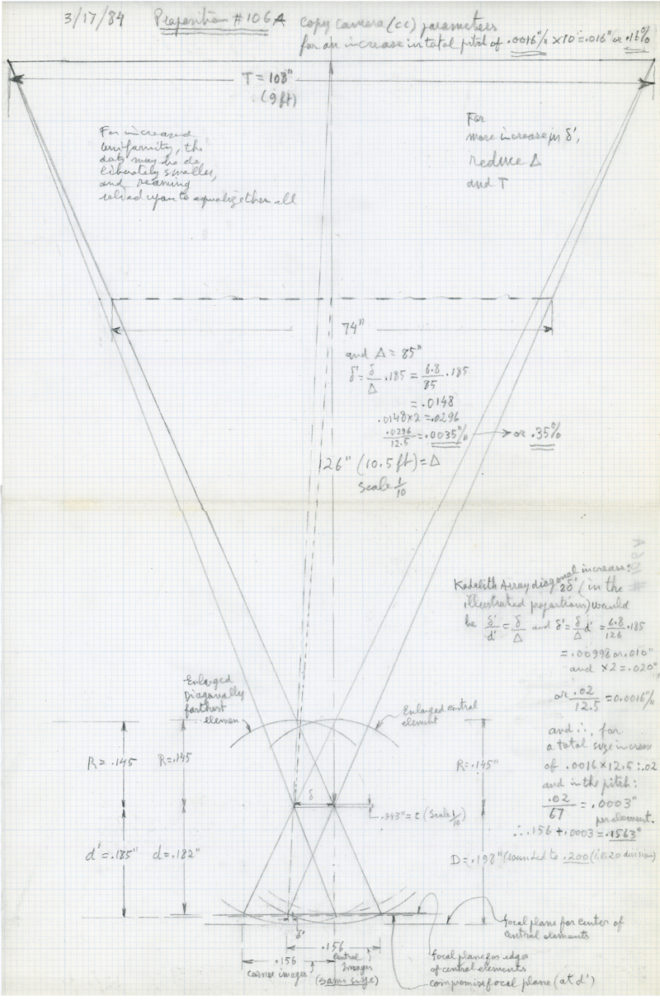 3/17/84 Proposition #106A copy camera (cc) parameters
for an increase in total pitch of .0016"/" x 10 = .016" or .16%
T = 108"
(9 ft)
For increased
uniformity, the
dots may be de-
liberately smaller,
and reaming
relied upon to equalize them all
For
more increase in δ',
reduce Δ
and T
74"
and Δ = 85"
δ' = δ/Δ .185 = 6.8/85 .185
= .0148
.0148x2 = .0296
.0296/12.5 = .0035"/" → or .35%
126" (10.5 ft) = Δ
scale 1/10
Kodalith Array diagonal increase:
2δ' (in the
illustrated proportions) would
be δ'/d' = δ/Δ and δ' = δ/Δ d' = 6.8/126 .185
= .00998 or .010"
and x2 = .020"
or .02/12.5 = 0.0016"/"
and ∴, for
a total size increase
of .0016 x 12.5 = .02
and in the pitch:
.02/67 = .0003"
per element.
∴ .156 + .0003 = .1563"
Enlarged
Diagonally
farthest
element
Enlarged central
element
R = .145
R = .145
R = .145"
δ
(scale 1/10)
d' = .185"
d = .182"
D = .198" (rounded to .200 (i.e. 20 divisions)
δ'
.156
.156
corner images
central
images
(same size)
focal plane for center of
central elements
focal plane for edges
of central elements
compromise focal plane (at d')